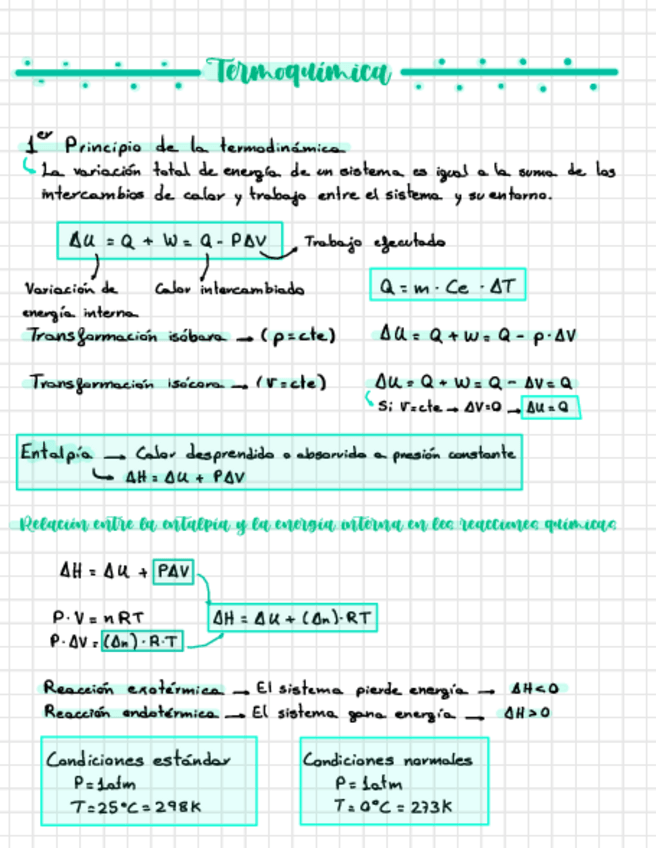 Termoquímica
1er Principio de la termodinámica
La variación total de energía de un sistema es igual a la suma de los
intercambios de calor y trabajo entre el sistema y su entorno.
ΔU = Q + W = Q - PΔV Trabajo ejecutado
Variación de energía interna Calor intercambiado
Q = m · Ce · ΔT
Transformación isóbara → (p=cte) ΔU = Q + W = Q - p·ΔV
Transformación isócora → (V=cte) ΔU = Q + W = Q - ΔV = Q
Si V=cte → ΔV=0 → ΔU=Q
Entalpía → Calor desprendido o absorvido a presión constante
ΔH = ΔU + PΔV
Relación entre la entalpía y la energía interna en las reacciones químicas
ΔH = ΔU + PΔV
P·V = nRT ΔH = ΔU + (Δn)·RT
P·ΔV = (Δn)·R·T
Reacción exotérmica → El sistema pierde energía → ΔH<0
Reacción endotérmica → El sistema gana energía → ΔH>0
Condiciones estándar
P=1atm
T=25°C=298K
Condiciones normales
P=1atm
T=0°C = 273K